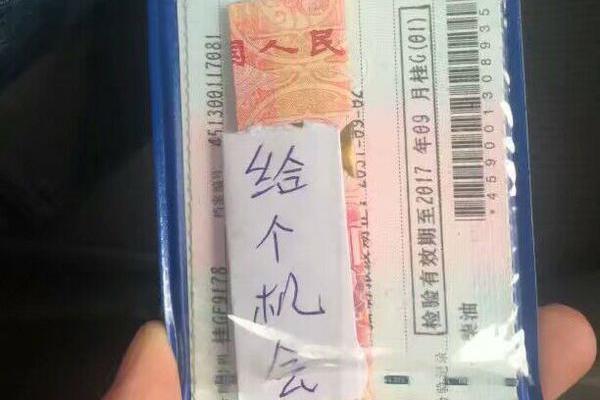 国人民
给个机会
档案编号 451300117081
桂GF9178
检验有效期至2017年09月桂G(01)
*4590013089355
柴油